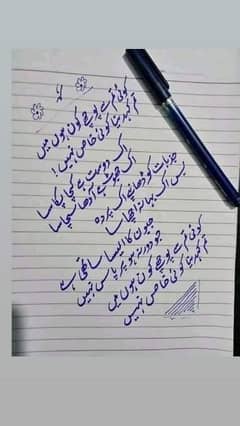 کوئی تم سے پوچھے کون ہوں میں
تم کہہ دینا کوئی خاص نہیں!
اک دوست ہے کچا پکا سا
اک جھوٹ ہے آدھا سچا سا
جذبات کو ڈھانپے اک پردہ
بس اک بہانہ اچھا سا
جیون کا ایسا ساتھی ہے
جو دور نہ ہو پر پاس نہیں
کوئی تم سے پوچھے کون ہوں میں
تم کہہ دینا کوئی خاص نہیں